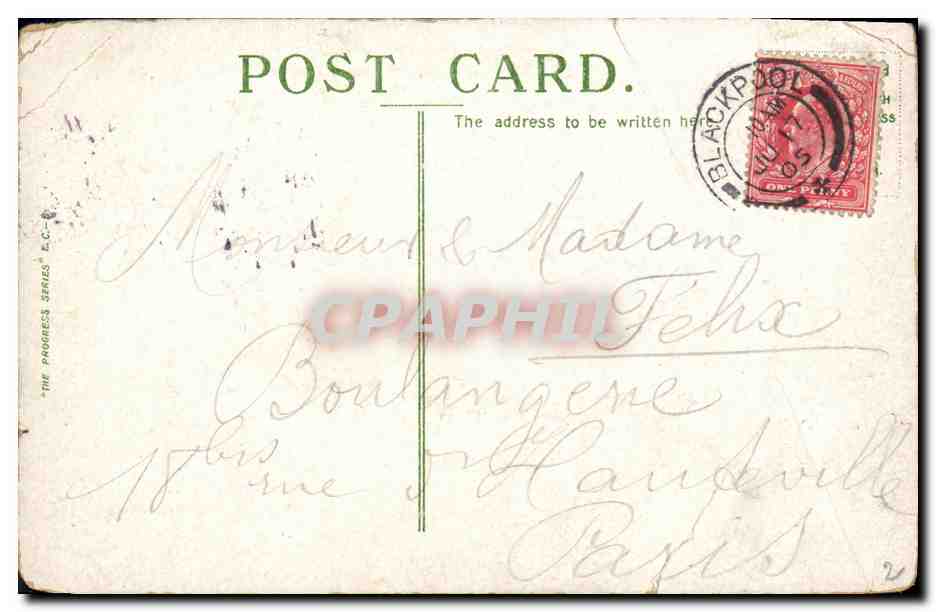 POST CARD.
The address to be written here
BLACKPOOL
10 AM
JU 17
05
ONE PENNY
"THE PROGRESS SERIES" E.C.
CPAPHIL
Monsieur & Madame
Felix
Boulangerie
18bis rue Hauteville
Paris
2